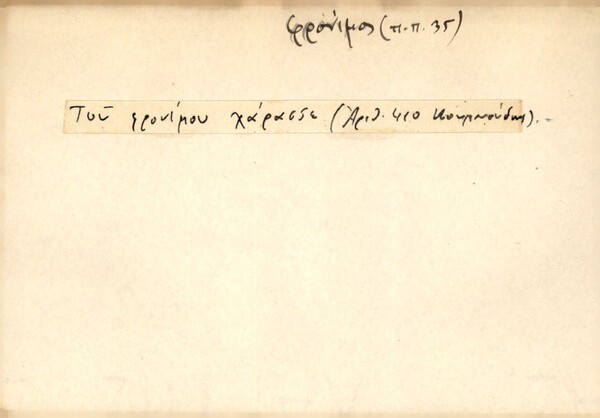 φρόνιμος (π.π. 35)
Τοῦ φρονίμου χάρασσε (Ἀριθ. 410 Κουμανούδης). -